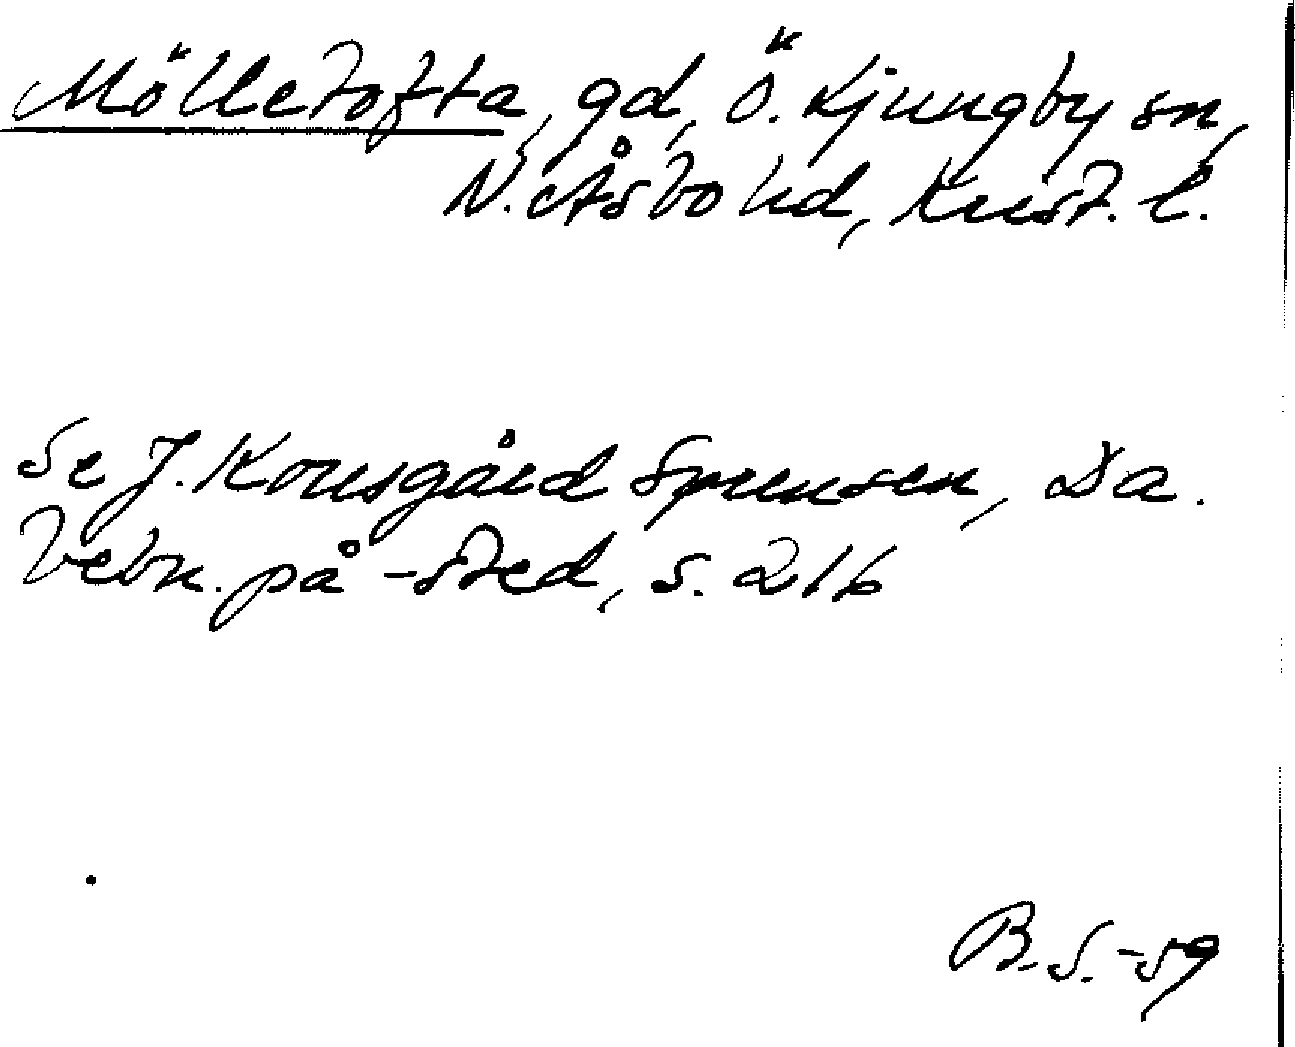 Mölletofta, gd, Ö. Ljungby sn,
N. Åsbo hd, Krist. l.
Se J. Kousgård Sørensen, Da.
Vebn. på -sted, s. 216
B. S. -59